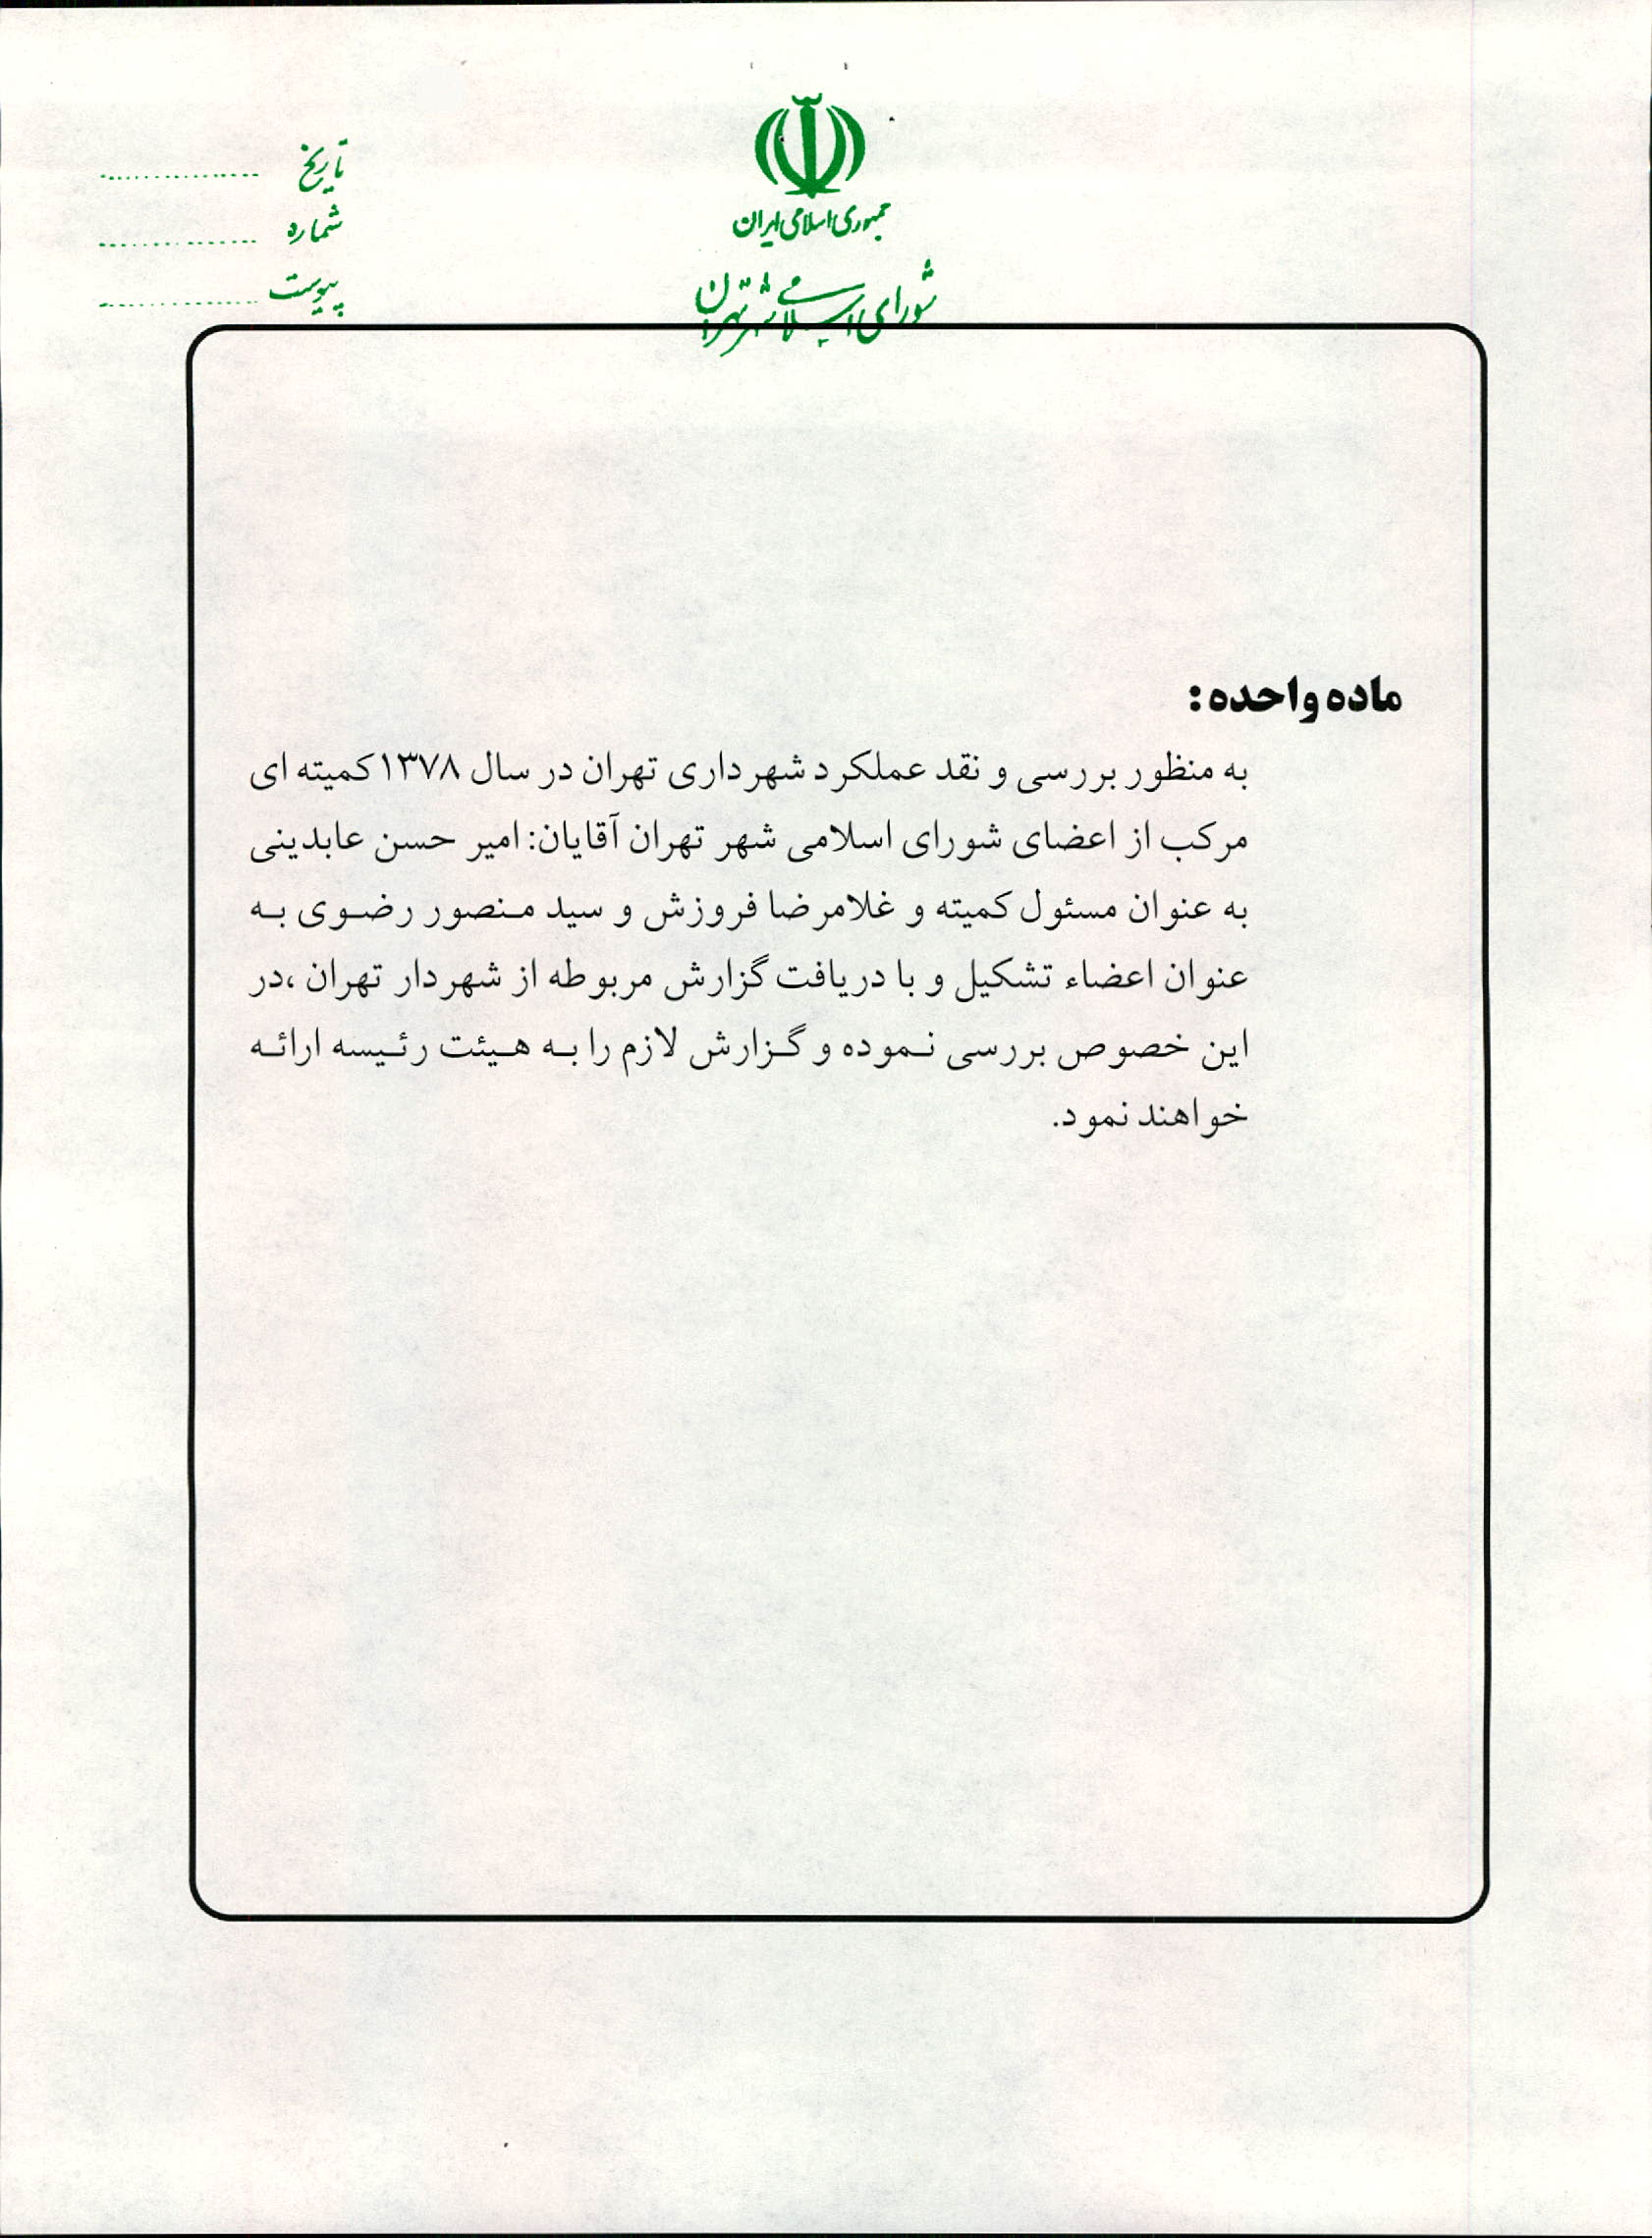 جمهوری اسلامی ایران
شورای اسلامی شهر تهران
تاریخ ................
شماره ................
پیوست ................
ماده واحده :
به منظور بررسی و نقد عملکرد شهرداری تهران در سال ۱۳۷۸ کمیته ای
مرکب از اعضای شورای اسلامی شهر تهران آقایان: امیر حسن عابدینی
به عنوان مسئول کمیته و غلامرضا فروزش و سید منصور رضوی به
عنوان اعضاء تشکیل و با دریافت گزارش مربوطه از شهردار تهران ،در
این خصوص بررسی نموده و گزارش لازم را به هیئت رئیسه ارائه
خواهند نمود.